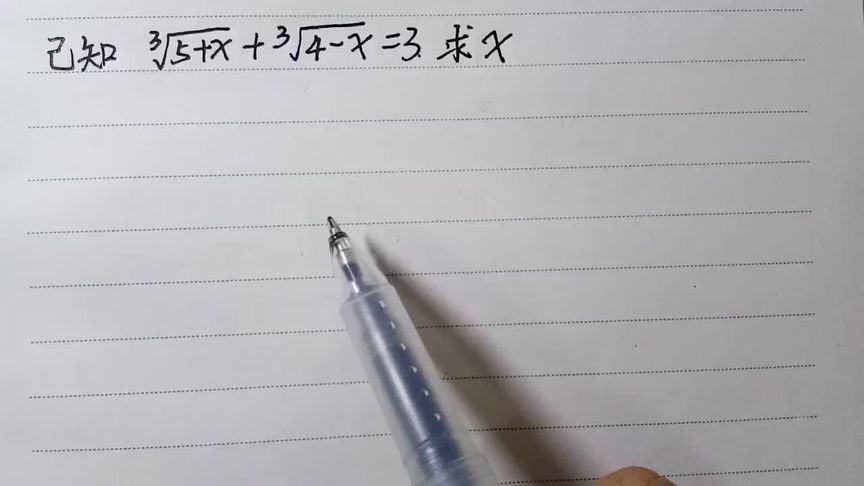 已知 ∛(5+x) + ∛(4-x) = 3. 求 x